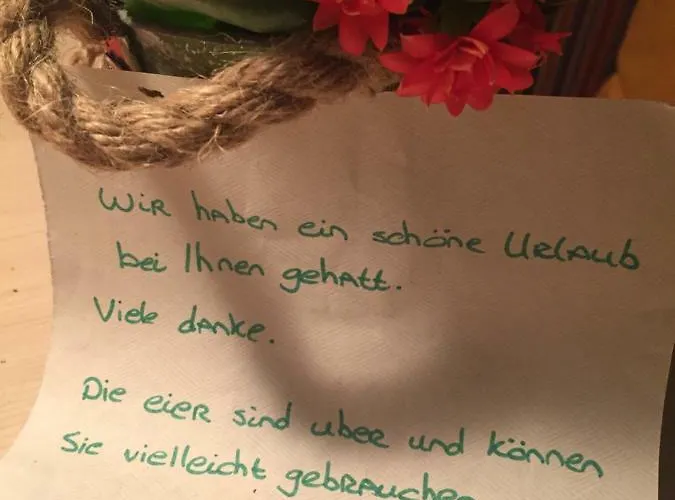 Wir haben ein schöne Urlaub
bei Ihnen gehatt.
Viele danke.
Die eier sind uber und können
Sie vielleicht gebrauchen